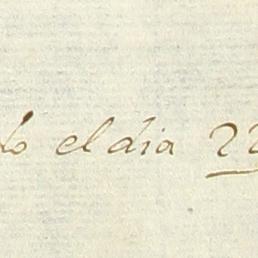 do el dia 22